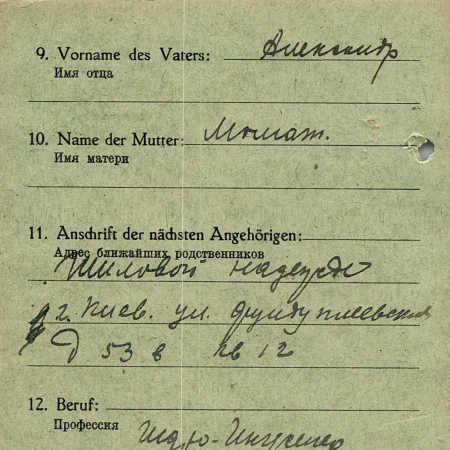 9. Vorname des Vaters: Александр
Имя отца
10. Name der Mutter:
Имя матери
11. Anschrift der nächsten Angehörigen:
Адрес ближайших родственников
Шиловой Надежде
г. Киев. ул.
Д 53 в кв 12
12. Beruf:
Профессия